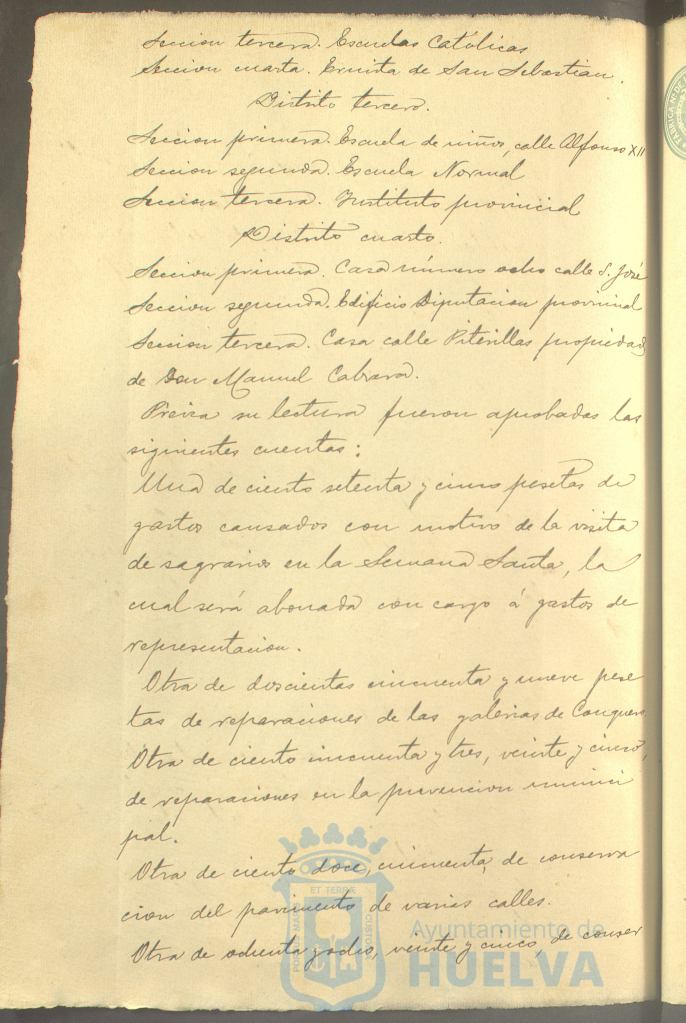 Seccion tercera. Escuelas Católicas
Seccion cuarta. Ermita de San Sebastian.
Distrito tercero.
Seccion primera. Escuela de niños, calle Alfonso XII
Seccion segunda. Escuela Normal
Seccion tercera. Instituto provincial
Distrito cuarto.
Seccion primera. Casa número ocho calle S. José
Seccion segunda. Edificio Diputacion provincial
Seccion tercera. Casa calle Piterillas propiedad
de Don Manuel Cabrera.
Previa su lectura fueron aprobadas las
siguientes cuentas:
Una de ciento setenta y cinco pesetas de
gastos causados con motivo de la visita
de sagrarios en la Semana Santa, la
cual será abonada con cargo á gastos de
representacion.
Otra de doscientas cincuenta y nueve pese
tas de reparaciones de las galerias de Conquero.
Otra de ciento cincuenta y tres, veinte y cinco,
de reparaciones en la prevencion munici
pal.
Otra de ciento doce, cincuenta, de conserva
cion del pavimento de varias calles.
Otra de ochenta y ocho, veinte y cinco, de conser
ET TERRÆ
PORTUS MARIS
CUSTODIA
Ayuntamiento de
HUELVA